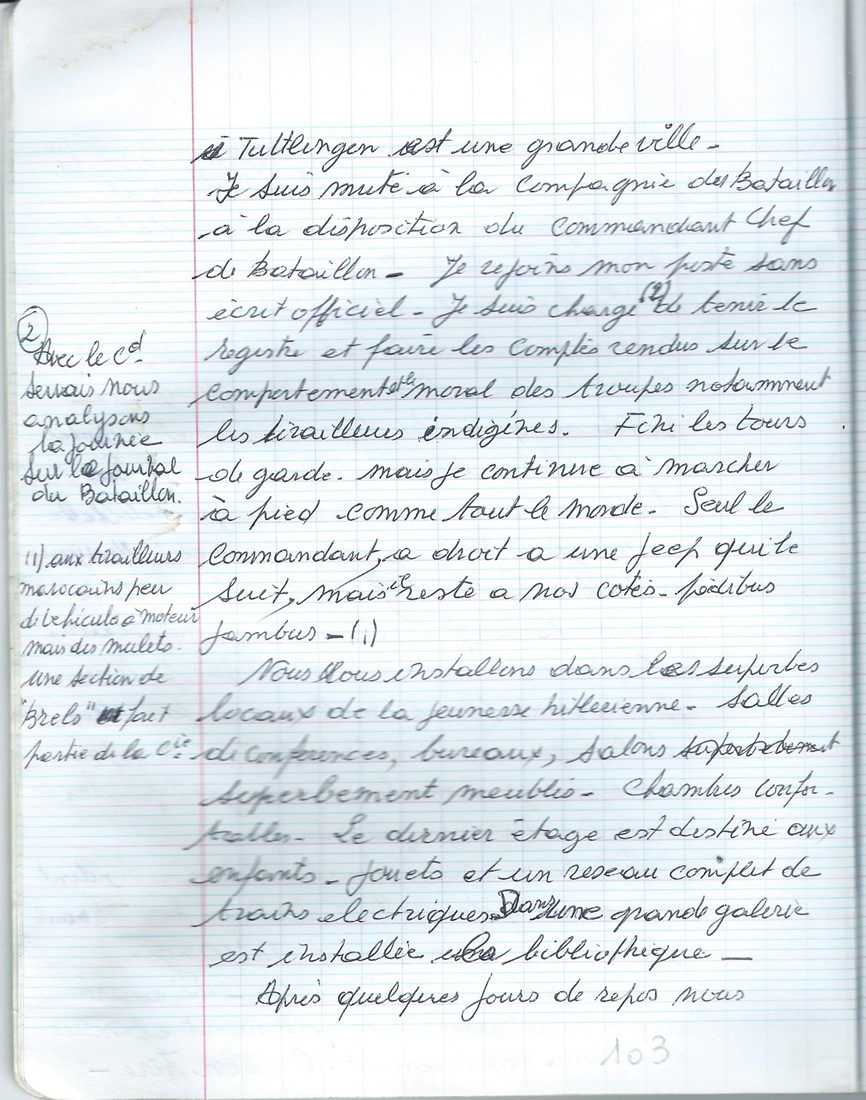 à Tultlingen est une grande ville -
Je suis muté à la Compagnie du Bataillon
à la disposition du Commandant Chef
de Bataillon - Je rejoins mon poste sans
écrit officiel - Je suis chargé (2) de tenir le
registre et faire les comptes rendus sur le
comportement et le moral des troupes notamment
les tirailleurs indigènes. Fini les tours
de garde. mais je continue à marcher
à pied comme tout le monde - Seul le
Commandant, a droit a une jeep qui le
suit, mais il reste a nos cotés - pédibus
jambus - (1)
Nous nous installons dans les superbes
locaux de la jeunesse hitlerienne - salles
de conferences, bureaux, salons
superbement meublés - Chambres confor-
tables - Le dernier étage est destiné aux
enfants - jouets et un reseau complet de
trains electriques. Dans une grande galerie
est installée la bibliothèque -
Après quelques jours de repos nous
(2)
Avec le Cd
Servais nous
analysons
la journée
sur le journal
du Bataillon.
(1) aux tirailleurs
marocains peu
de vehicules à moteur
mais des mulets -
une section de
"Brels" fait
partie de la Cie
103